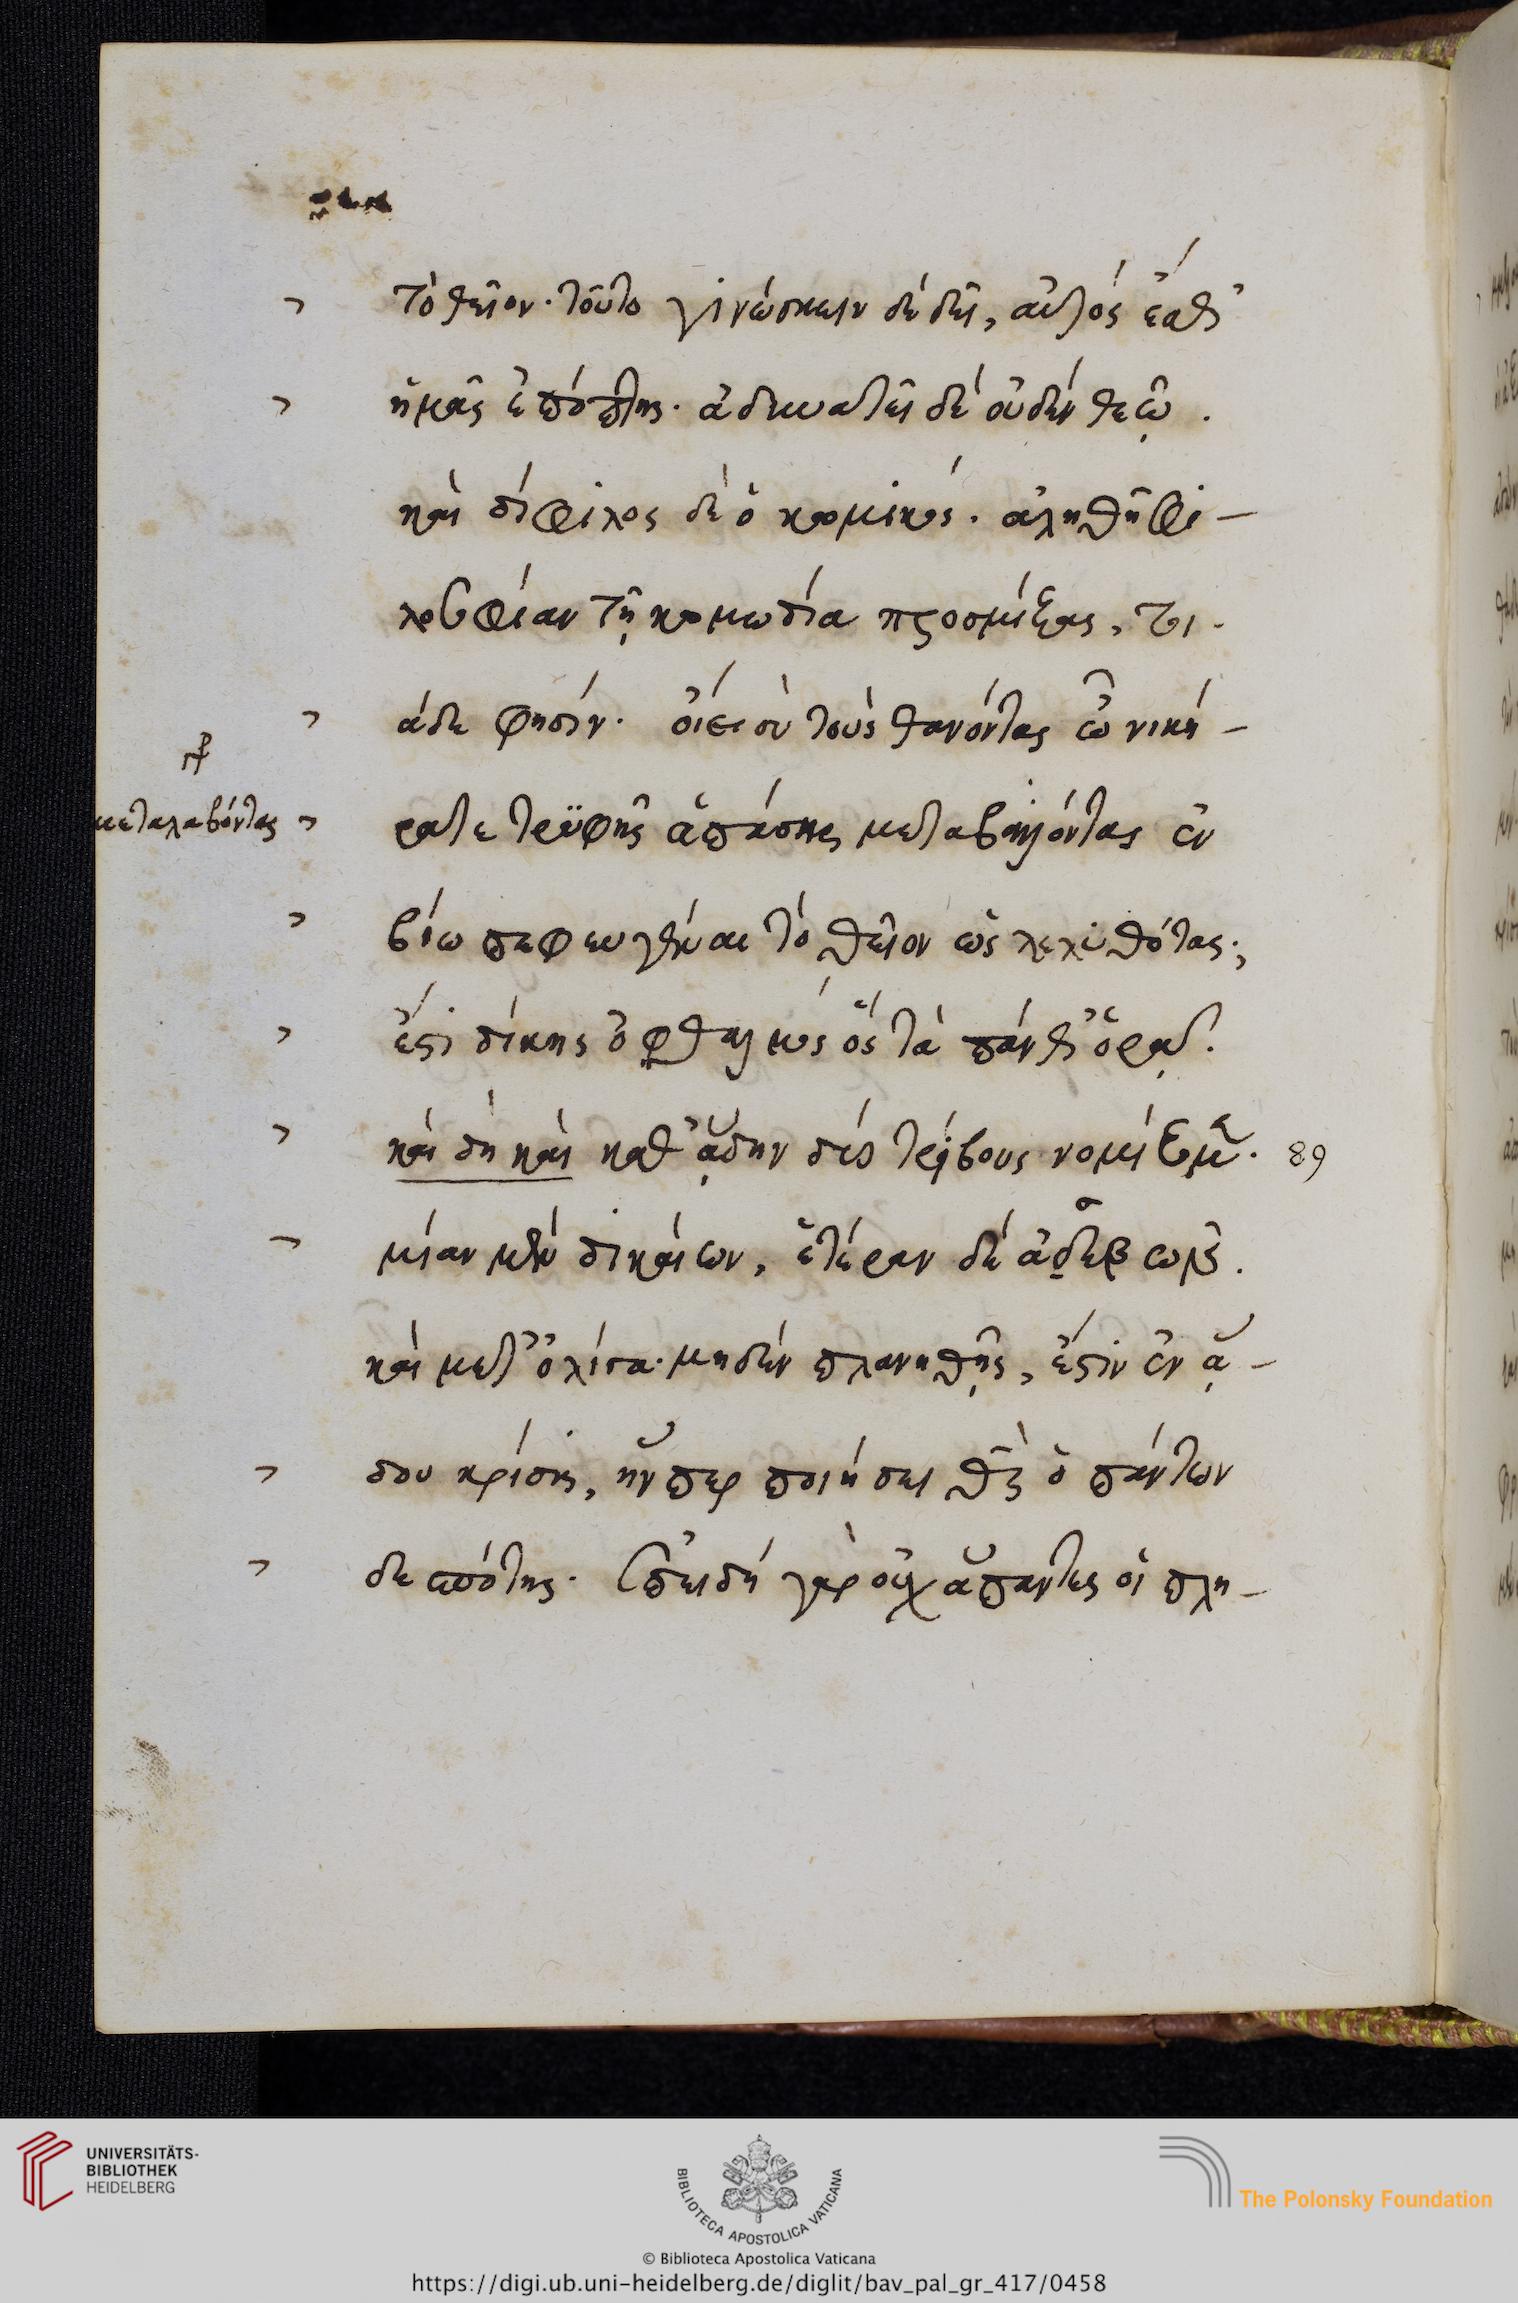 τὸ θεῖον· τοῦτο γινώσκειν δὲ δεῖ, αὐτός ἐσθ᾽
ἡμᾶς ἐπόπτης· ἀδυνατεῖ δὲ οὐδὲν θεῷ.
καὶ δίφιλος δὲ ὁ κωμικός. ἀληθῆ φι-
λοσοφίαν τῇ κωμωδία προσμίξας, τοι-
άδε φησίν. οἴει σὺ τοὺς θανόντας ὦ νική-
μεταλαβόντας
ρατε τρυφῆς ἁπάσης μεταβαλόντας ἐν
βίω πεφευγέναι τὸ θεῖον ὡς λεληθότας;
ἔστι δίκης ὀφθαλμός ὃς τὰ πάνθ᾽ ὁρᾷ.
καὶ δὴ καὶ καθ᾽ ᾅδην δύο τρίβους νομίζομεν. 89
μίαν μὲν δικαίων, ἑτέραν δὲ ἀσεβῶν.
καὶ μετ᾽ ὀλίγα· μηδὲν πλανηθῇς, ἔστιν ἐν ᾅ-
δου κρίσις, ἥνπερ ποιήσει θς ὁ πάντων
δεσπότης. ἐπειδὴ γὰρ οὐχ ἅπαντες οἱ πλη-
UNIVERSITÄTS-
BIBLIOTHEK
HEIDELBERG
BIBLIOTECA APOSTOLICA VATICANA
The Polonsky Foundation
© Biblioteca Apostolica Vaticana
https://digi.ub.uni-heidelberg.de/diglit/bav_pal_gr_417/0458